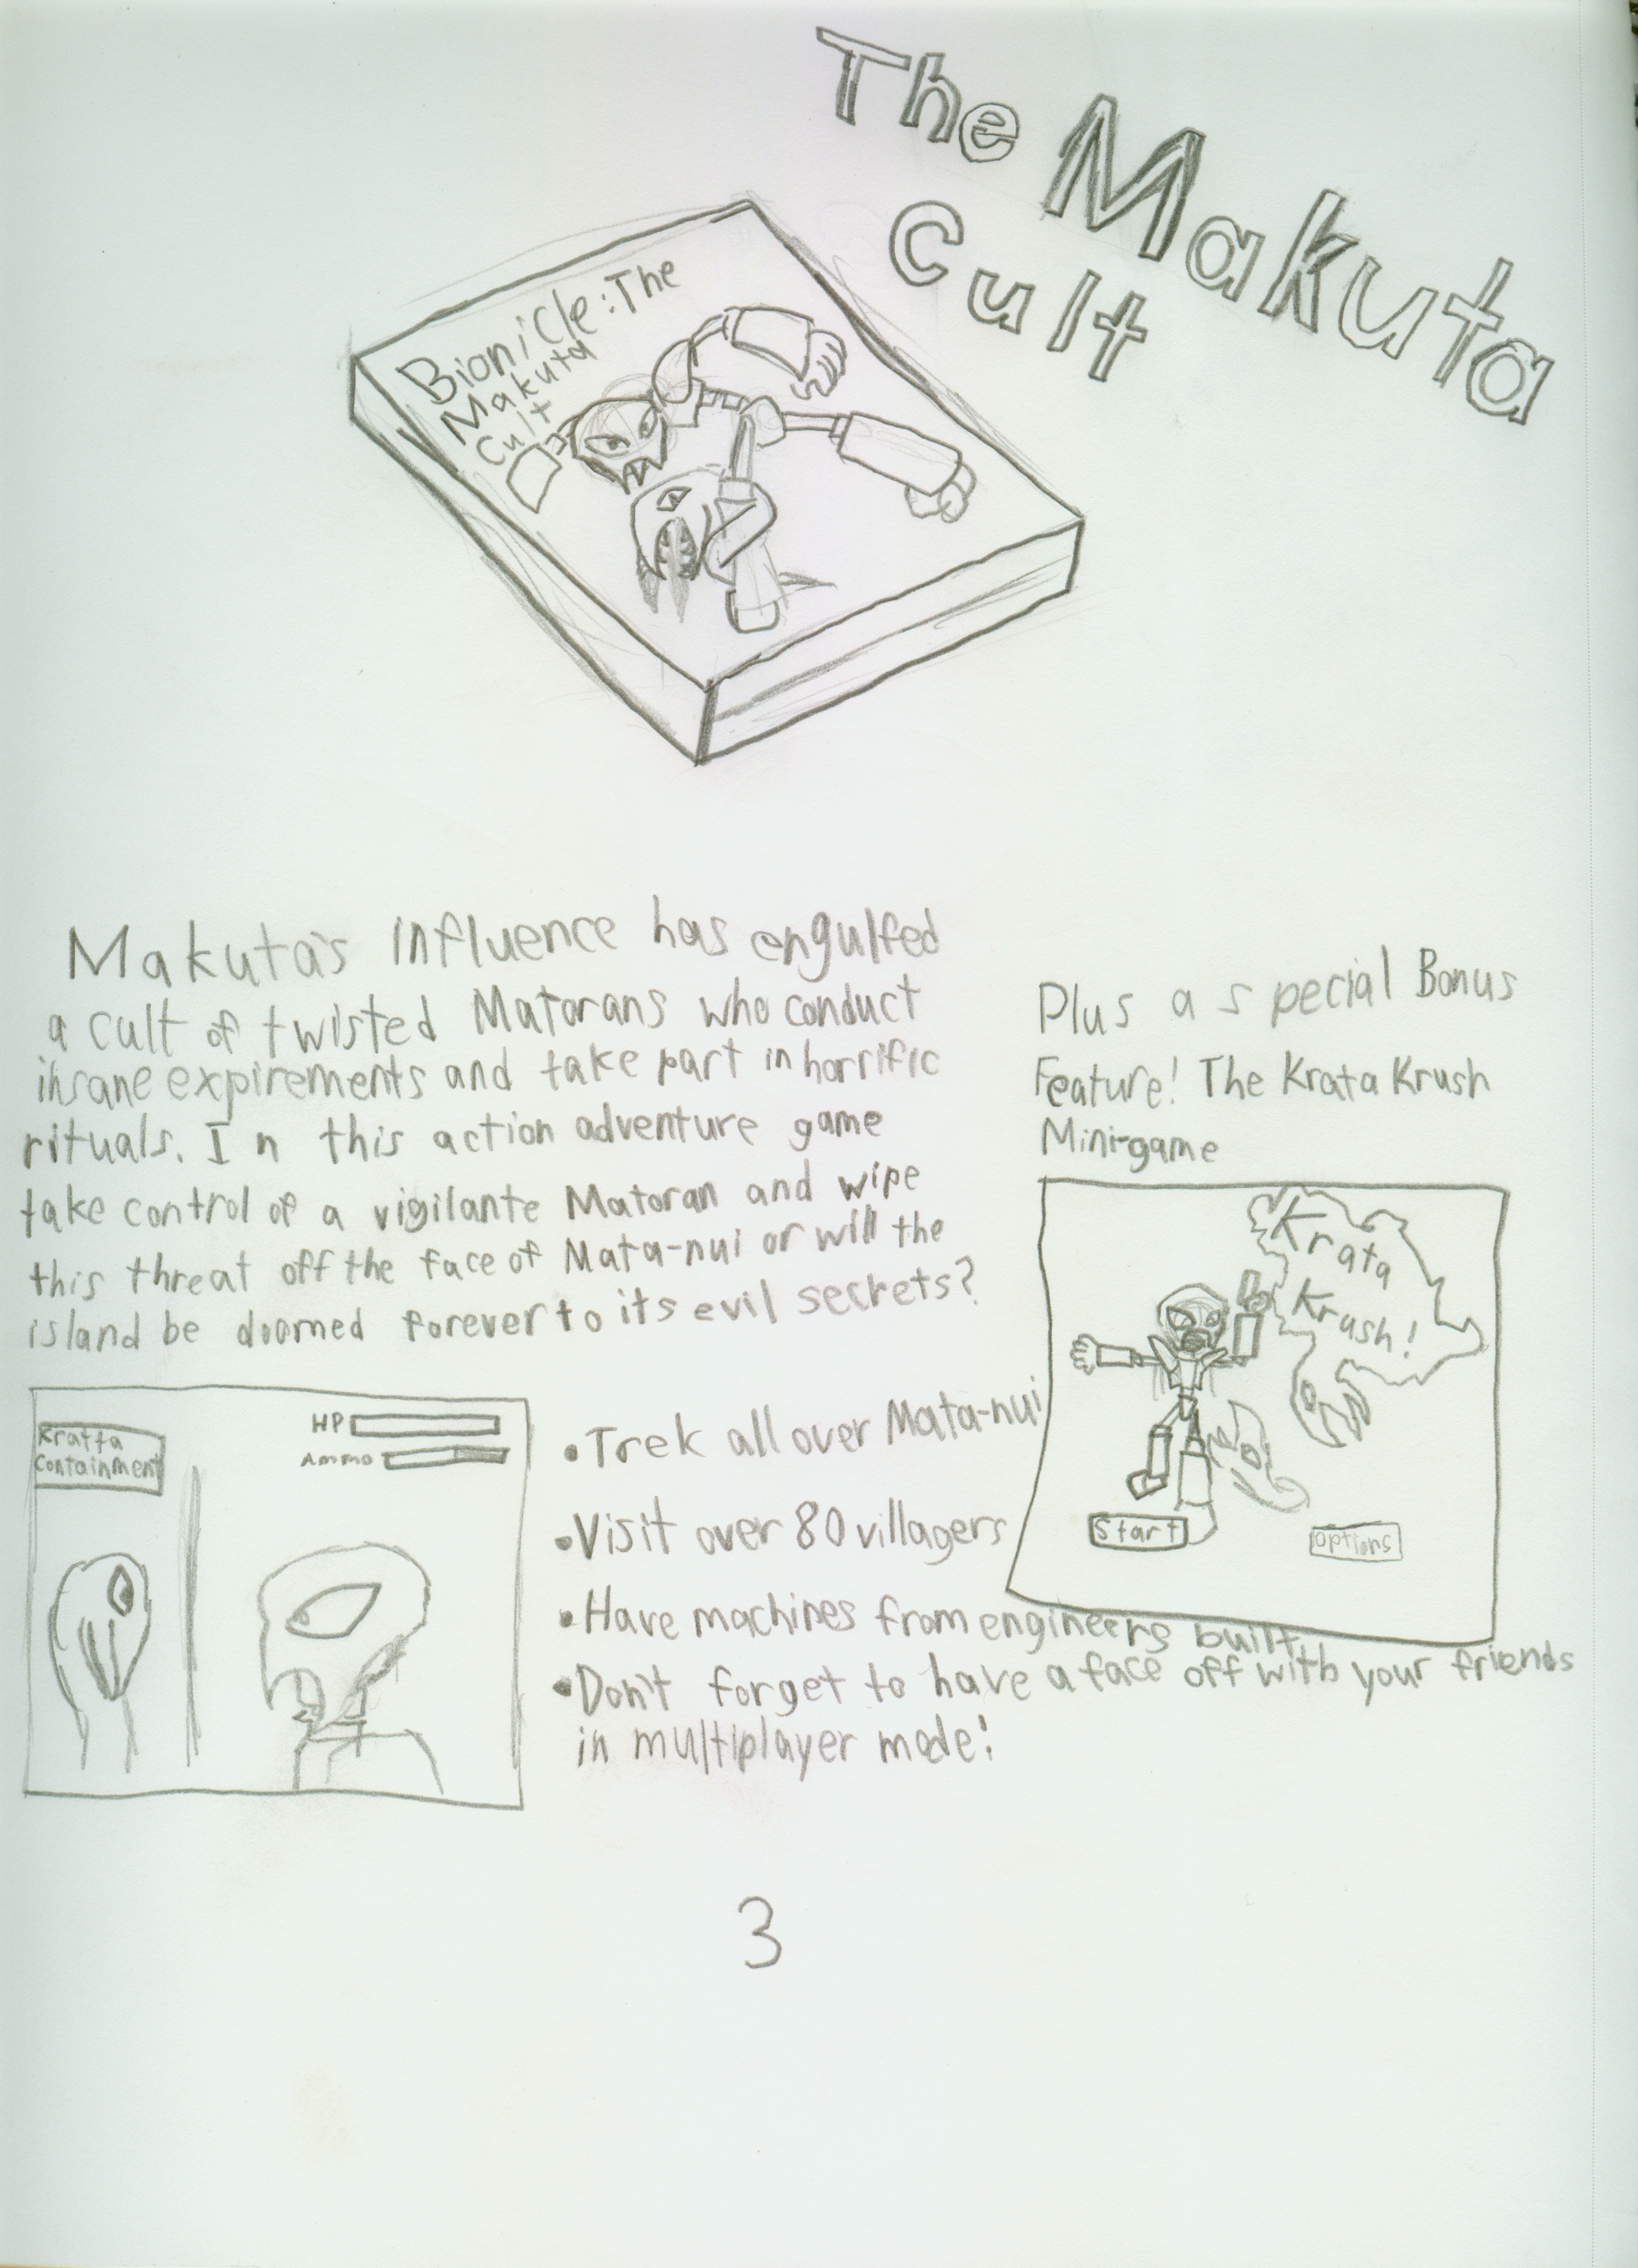 The Makuta
Cult
Bionicle: The
Makuta
Cult
Makuta's influence has engulfed
a cult of twisted Matorans who conduct
insane expirements and take part in horrific
rituals. In this action adventure game
take control of a vigilante Matoran and wipe
this threat off the face of Mata-nui or will the
island be doomed forever to its evil secrets?
Plus a special Bonus
Feature! The Krata Krush
Mini-game
Krata
Krush!
Start
Options
Kratta
Containment
HP
Ammo
•Trek all over Mata-nui
•Visit over 80 villagers
•Have machines from engineers built
•Don't forget to have a face off with your friends
in multiplayer mode!
3